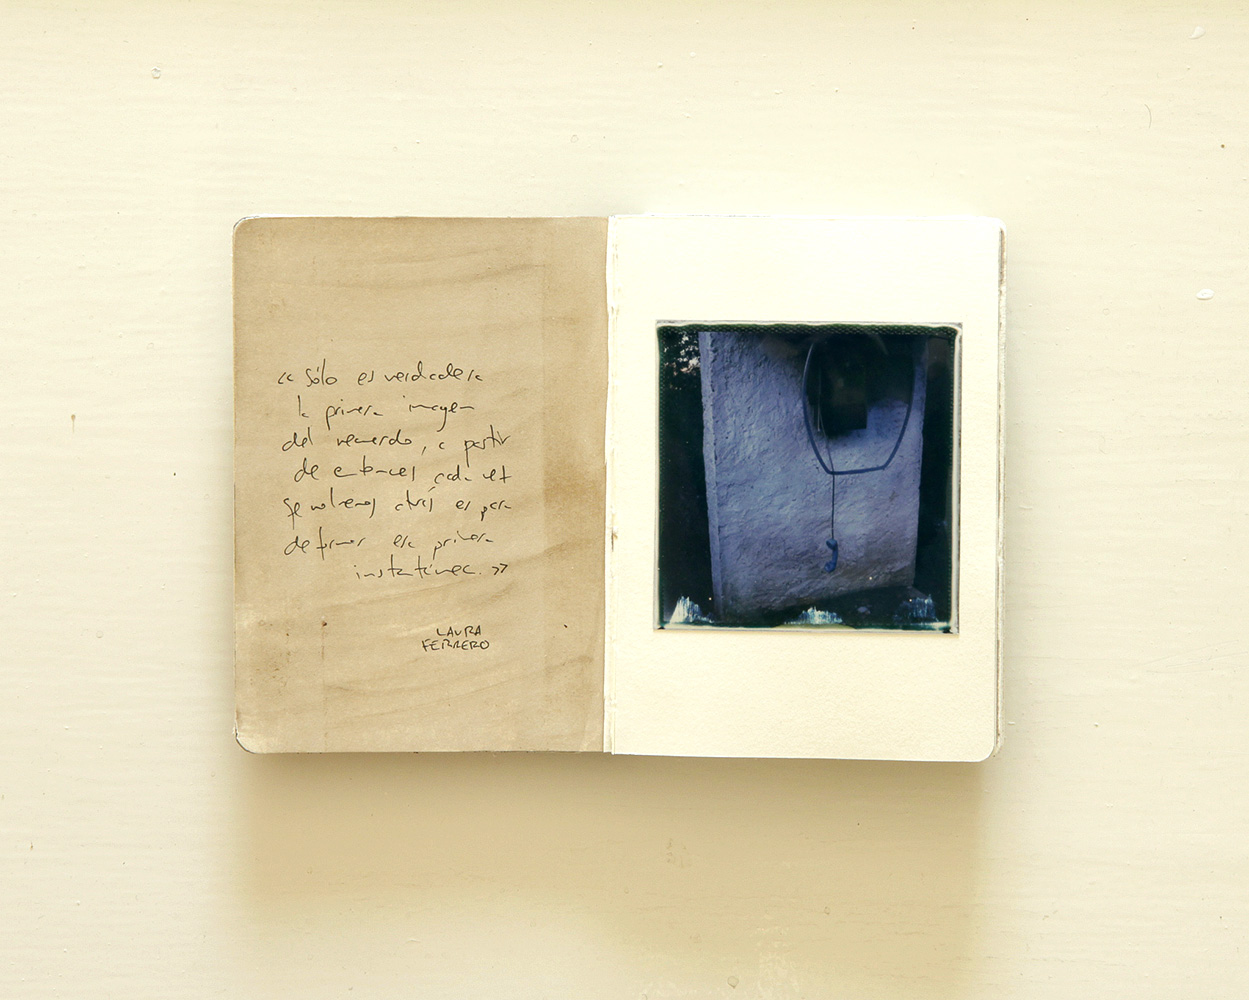 «Sólo es verdadera
la primera imagen
del recuerdo, a partir
de entonces, cada vez
que volvemos atrás es para
deformar esa primera
instantánea.»
LAURA
FERRERO